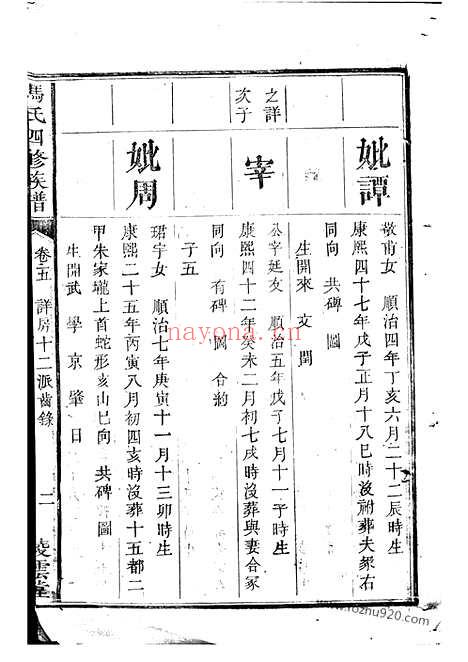 妣譚
敬甫女 順治四年丁亥六月二十二辰時生
康熙四十七年戊子正月十八巳時沒祔葬夫冢右
同向 共碑 圖
生開來 文 閏
之詳
次子
宰
公宰廷友 順治五年戊子七月十一子時生
康熙四十二年癸未二月初七戌時沒葬與妻合冢
同向 有碑 圖 合約
子五
妣周
珺宇女 順治七年庚寅十一月十三卯時生
康熙二十五年丙寅八月初四亥時沒葬十五都二
甲朱家壠上首蛇形亥山巳向 共碑 圖
生開武 學 京 肇 日
馮氏四修族譜
卷之五 詳房十二派齒錄
二
凌雲堂
nayona.cn
www.rozhu920.com